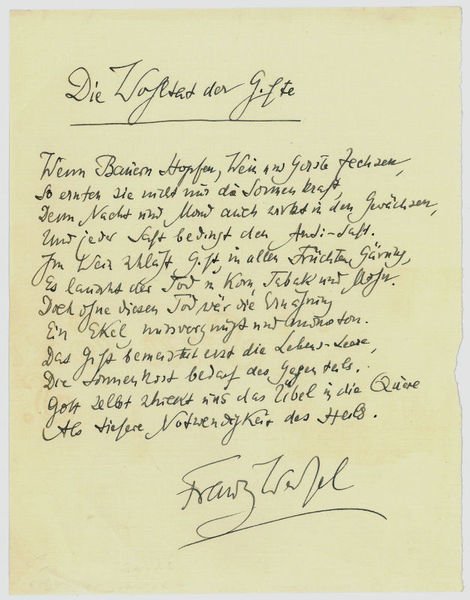 Die Wohltat der Gifte
Wenn Bauern Hopfen, Wein und Gerste fechsen,
So ernten sie nicht nur die Sonnenkraft,
Denn Nacht und Mond auch wirkt in den Gewächsen,
Und jeder Saft bedingt den Anti-Saft.
Im Wein schläft Gift, in allen Früchten Gärung,
Es lauscht der Tod in Korn, Tabak und Mohn.
Doch ohne diesen Tod wär die Ernährung
Ein Ekel missvergnügt und monoton.
Das Gift bemeistert erst die Lebens-Leere,
Die Sonnenkost bedarf des Gegenteils.
Gott selbst schickt uns das Übel in die Quere
Als tiefere Notwendigkeit des Heils.
Franz Werfel